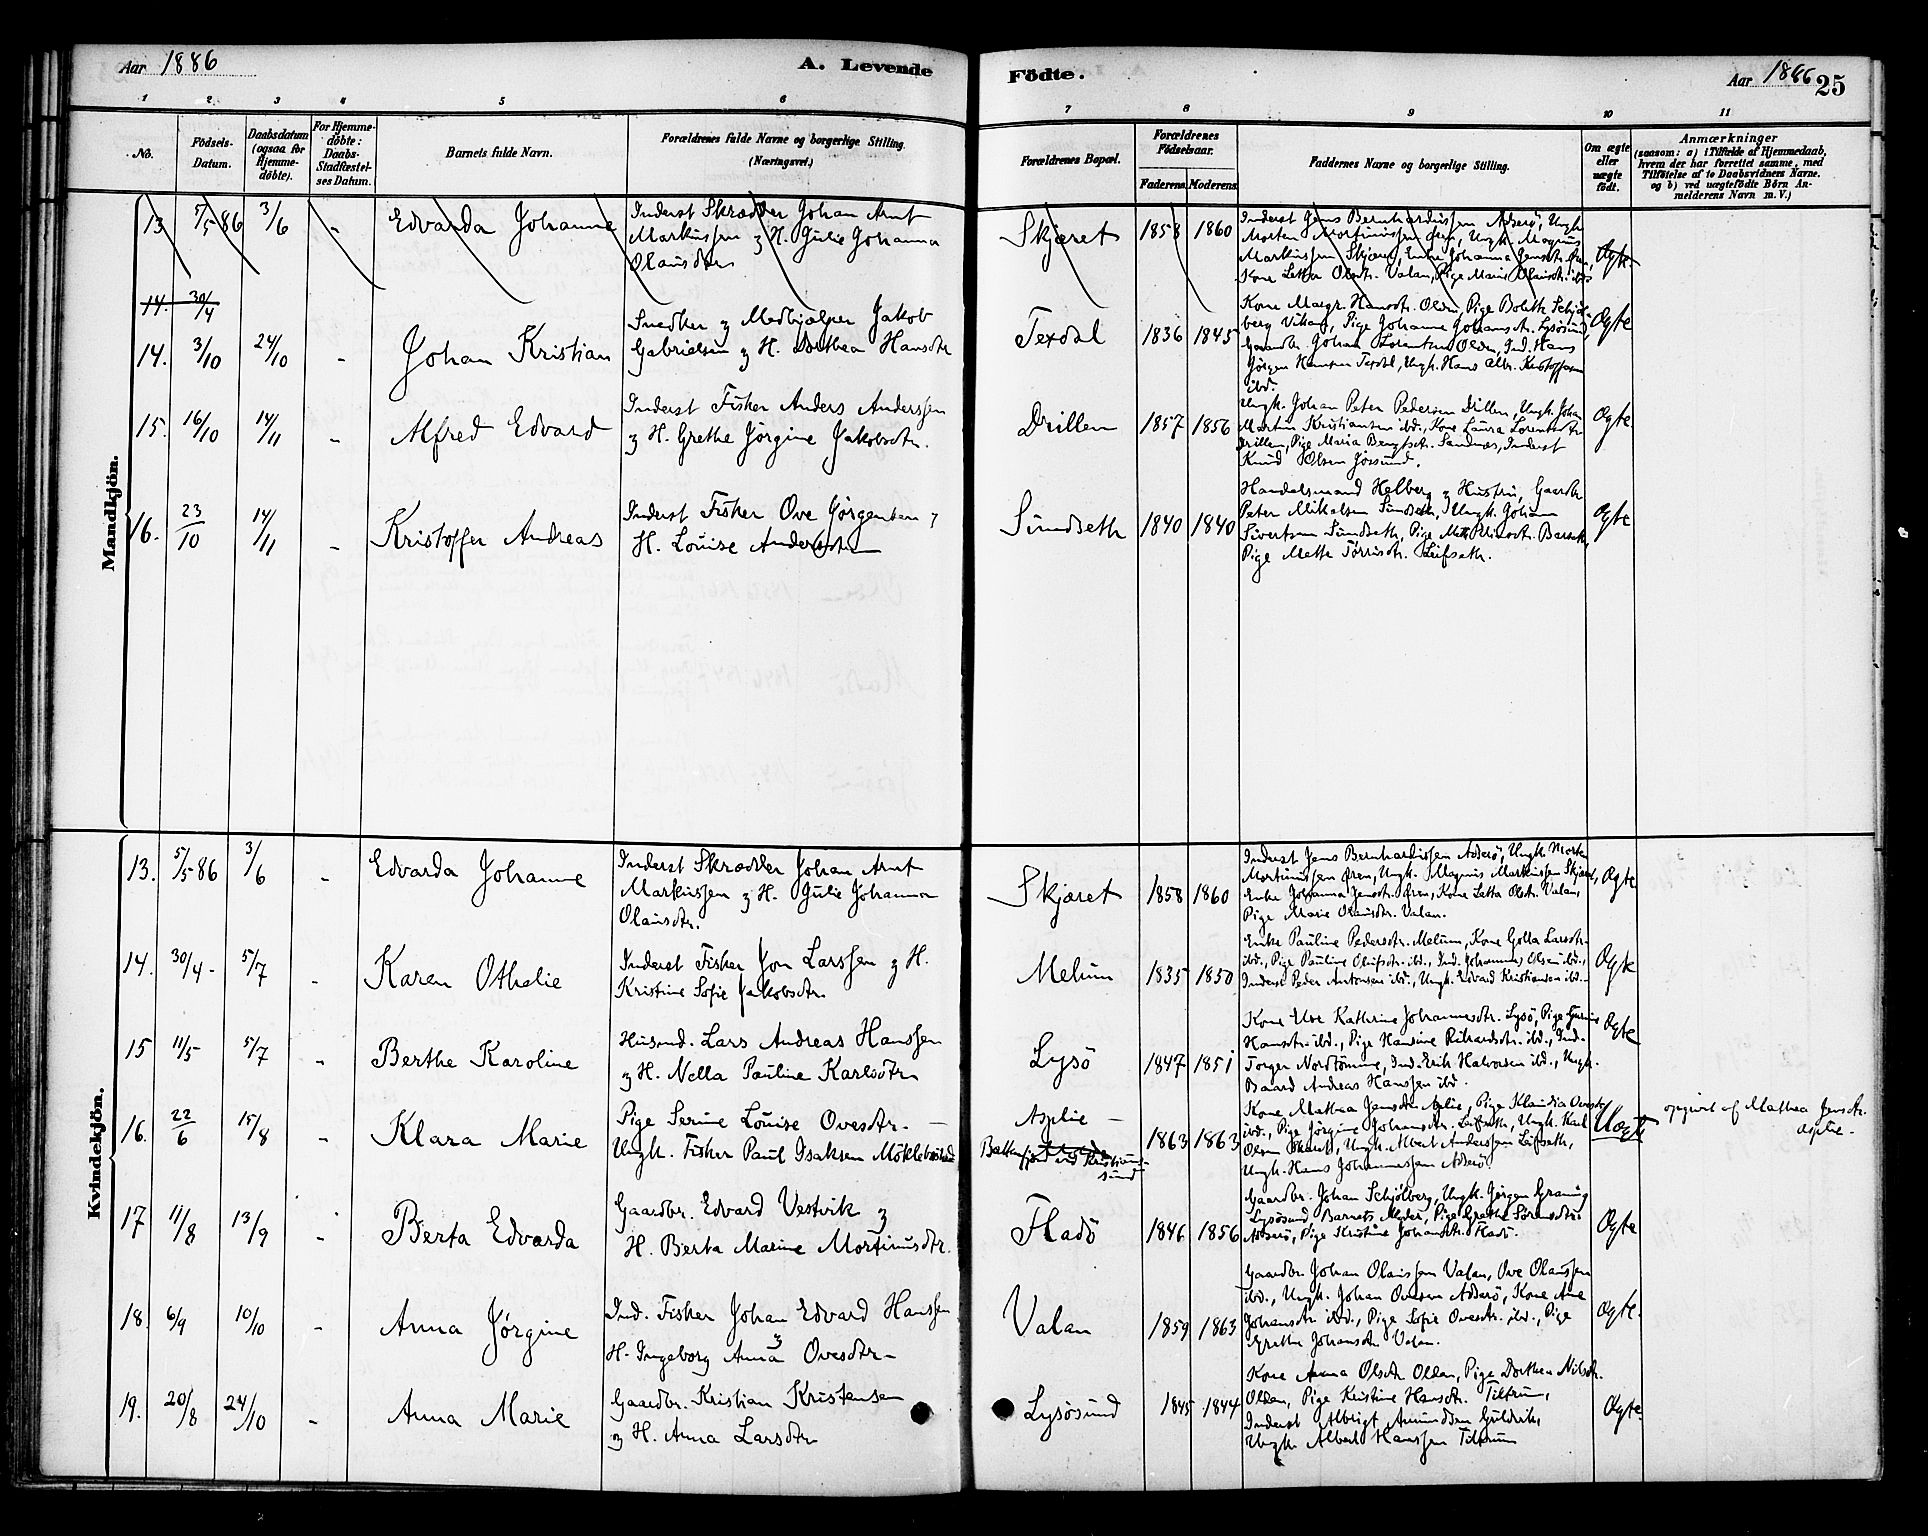 Aar 1886
A. Levende
Födte.
Aar 1886
25
1 2 3 4 5 6 7 8 9 10 11
No.
Födsels-Datum.
Daabsdatum (ogsaa for Hjemme-döbte).
For Hjemme-döbte: Daabs-Stadfæstel-ses Datum.
Barnets fulde Navn.
Forældrenes fulde Navne og borgerlige Stilling.
(Næringsvei.)
Forældrenes Bopæl.
Forældrenes Födselsaar.
Faderens. Moderens.
Faddernes Navne og borgerlige Stilling.
Om ægte eller uægte födt.
Anmærkninger
(saasom: a) i Tilfælde af Hjemmedaab,
hvem der har forrettet samme, med
Tilföielse af to Daabsvidners Navne.
og b) ved uægtefödte Börn An-
melderens Navn m. V.)
Mandkjön.
13 5/5-86 3/6 - Edvarda Johanne
Inderst Skrædder Johan Arnt
Markussen & H. Julie Johanna
Olausdtr
Skjæret 1858 1860
Inderst Jens Bernhardussen Adserö, Ungk.
Morten Mortinussen Ören, Ungk. Magnus
Markussen Skjæret, Enke Johanna Jensdtr. Ören,
Kone Letha Olsdtr. Valan, Pige Marie Olausdtr. ibd
Ægte.
14. 30/4
14. 3/10 24/10 - Johan Kristian
Snedker & Medhjælper Jakob
Gabrielsen & H. Dorthea Hansdtr
Texdal 1836 1845
Kone Margr. Hansdtr. Olden, Pige Boleth Schjöl-
berg Vikan, Pige Johanne Johansdtr. Lysösund,
Gaardbr. Johan Lorentsen Olden, Ind. Hans
Jörgen Hansen Texdal, Ungk. Hans Alb. Kristoffersen
ibd.
Ægte
15. 16/10 14/11 - Alfred Edvard
Inderst Fisker Anders Anderssen
& H. Grethe Jörgine Jakobsdtr.
Drillen 1857 1856
Ungk. Johan Peter Pedersen Drillen, Ungk. Johan
Martin Kristiansen ibd., Kone Laura Lorentsdtr
Drillen, Pige Maria Bengtsdtr. Sandnæs, Inderst
Knud Olsen Jössund.
Ægte
16. 23/10 14/11 - Kristoffer Andreas
Inderst Fisker Ove Jörgensen &
H. Louise Andersdtr
Sundseth 1840 1840
Handelsmand Helberg & Hustru, Gaardbr
Peter Mikalsen Sundseth, Ungk. Johan
Sivertsen Sundseth, Pige
Pige Mette Törrisdtr. Leifseth.
Ægte
Kvindekjön.
13. 5/5-86 3/6 - Edvarda Johanne
Inderst Skrædder Johan Arnt
Markussen & H. Julie Johanna
Olausdtr.
Skjæret 1858 1860
Inderst Jens Bernhardussen Adserö, Ungk. Morten
Mortinussen Ören, Ungk. Magnus Markussen Skjæret,
Enke Johanna Jensdtr. Ören, Kone Letta Olsdtr. Valan,
Pige Marie Olausdtr. Valan.
Ægte
14. 30/4- 5/7 - Karen Othelie
Inderst Fisker Jon Larssen & H.
Kristine Sofie Jakobsdtr
Melum 1835 1850
Enke Pauline Pedersdtr. Melum, Kone Golla Larsdtr.
ibd., Pige Pauline Olufsdtr. ibd., Ind. Johannes Olsen ibd.,
Inderst Peder Antonsen ibd., Ungk. Edvard Kristiansen ibd.-
Ægte
15 11/5 5/7 - Berthe Karoline
Husmd. Lars Andreas Hanssen
& H. Nella Pauline Karlsdtr
Lysö 1847 1851
Kone Katrine Johannesdtr. Lysö, Pige Gurine
Hansdtr. ibd., Pige Hansine Rikardsdtr. ibd., Ind.
Torger Nordtömme, Ind. Erik Halvorsen ibd., Ungk.
Baard Andreas Hanssen ibd.
Ægte
16. 22/6 15/8 - Klara Marie
Pige Serine Louise Ovesdtr. -
Ungk. Fisker Paul Isaksen Möklebostad
Asplie -
Batnfjord ved Kristian-
sund
1863 1863
Kone Mathea Jensdtr Asplie, Pige Klaudia Ovesdtr
ibd., Pige Jörgine Johansdtr. Leifseth, Ungk. Karl
Olsen, Ungk. Albert Anderssen Leifseth,
Ungk. Hans Johannessen Adserö
Uægte
opgivet af Mathea Jensdtr.
Asplie -
17 11/8 13/9 - Berta Edvarda
Gaardbr. Edvard Vestvik &
H. Berta Marine Mortinusdtr.
Fladö 1846 1856
Gaardbr. Johan Schjölberg, Ungk. Jörgen Graning
Lysösund, Barnets Moder, Pige Grethe Sörensdtr.
Adserö, Pige Kristine Johansdtr. Fladö.
Ægte
18. 6/9 10/10 - Anna Jörgine
Ind. Fisker Johan Edvard Hanssen
& H. Ingeborg Anna Ovesdtr -
Valan 1859 1863
Gaardbr. Johan Olaussen Valan, Ove Olaussen
ibd., Ungk. Johan Ovesen Adserö, Kone Ane
Johansdtr ibd., Pige Sofie Ovesdtr. ibd., Pige
Grethe Johansdtr Valan.
Ægte.
19. 20/8 24/10 - Anna Marie
Gaardbr. Kristian Kristensen
& H. Anna Larsdtr
Lysösund 1845 1844
Kone Anna Olsdtr Olden, Pige Dorthea Nilsdtr.
Olden, Pige Kristine Hansdtr. Tiltrum,
Inderst Albrigt Amundsen Guldvik,
Ungk. Albert Hanssen Tiltrum
Ægte.